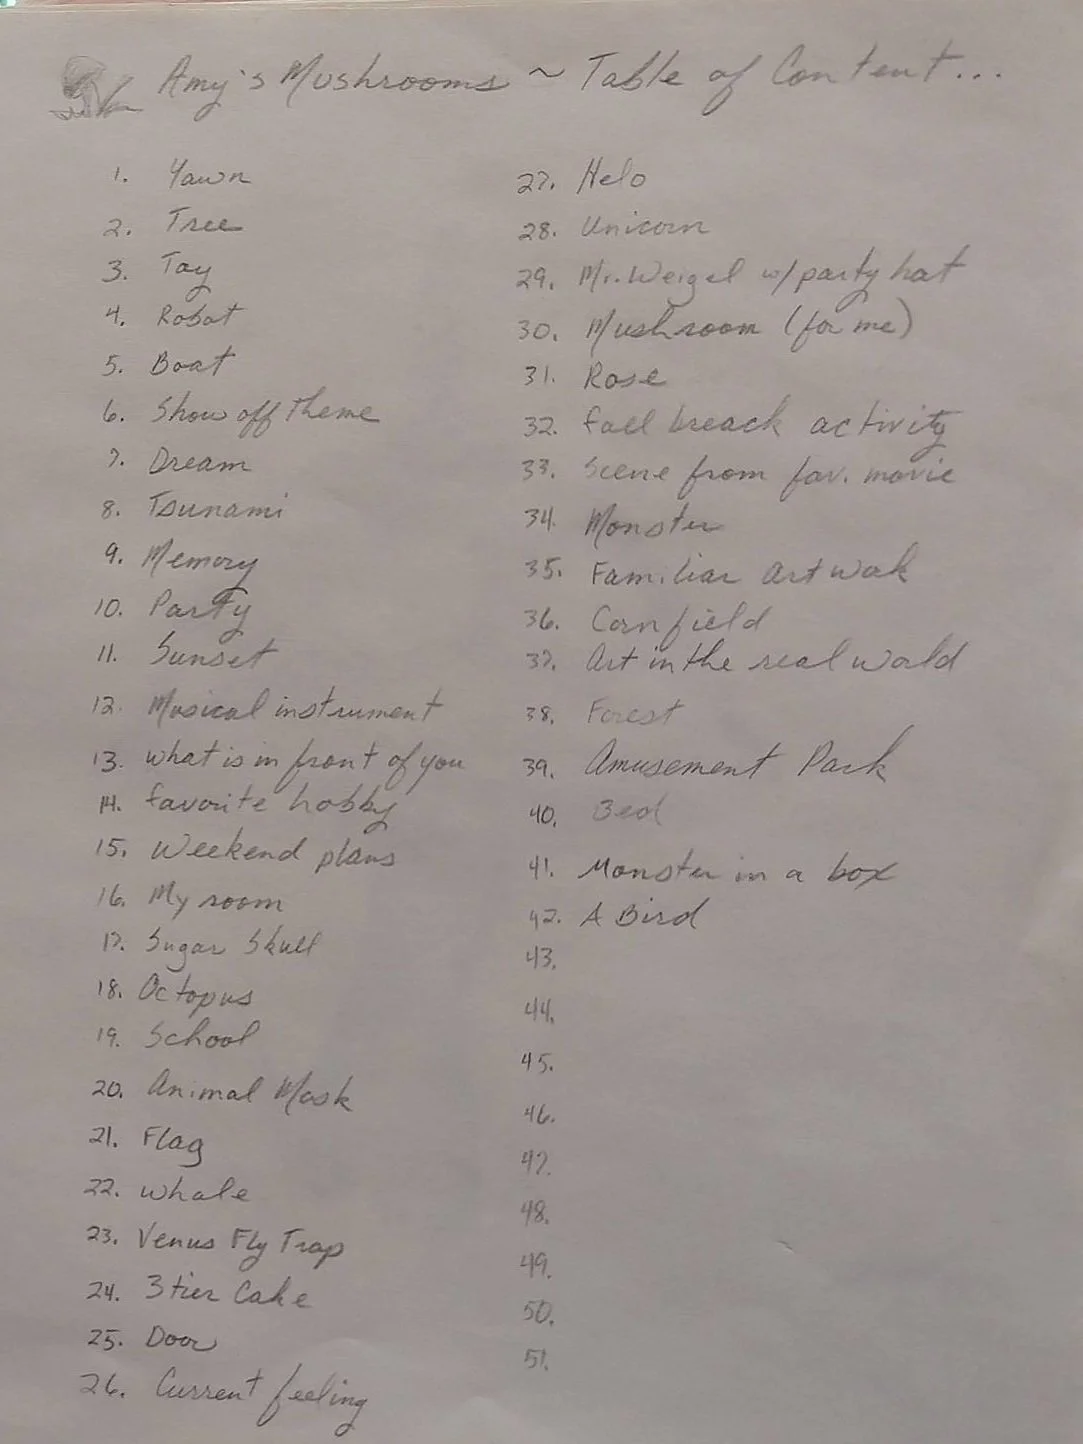 Amy's Mushrooms ~ Table of Content...
1. Yawn
2. Tree
3. Toy
4. Robot
5. Boat
6. Show off theme
7. Dream
8. Tsunami
9. Memory
10. Party
11. Sunset
12. Musical instrument
13. what is in front of you
14. favorite hobby
15. Weekend plans
16. My room
17. Sugar Skull
18. Octopus
19. School
20. Animal Mask
21. Flag
22. Whale
23. Venus Fly Trap
24. 3 tier Cake
25. Door
26. Current feeling
27. Helo
28. Unicorn
29. Mr. Weigel w/ party hat
30. Mushroom (for me)
31. Rose
32. fall breack activity
33. Scene from fav. movie
34. Monster
35. Familiar Art wok
36. Cornfield
37. Art in the real world
38. Forest
39. Amusement Park
40. Bed
41. Monster in a box
42. A Bird
43.
44.
45.
46.
47.
48.
49.
50.
51.